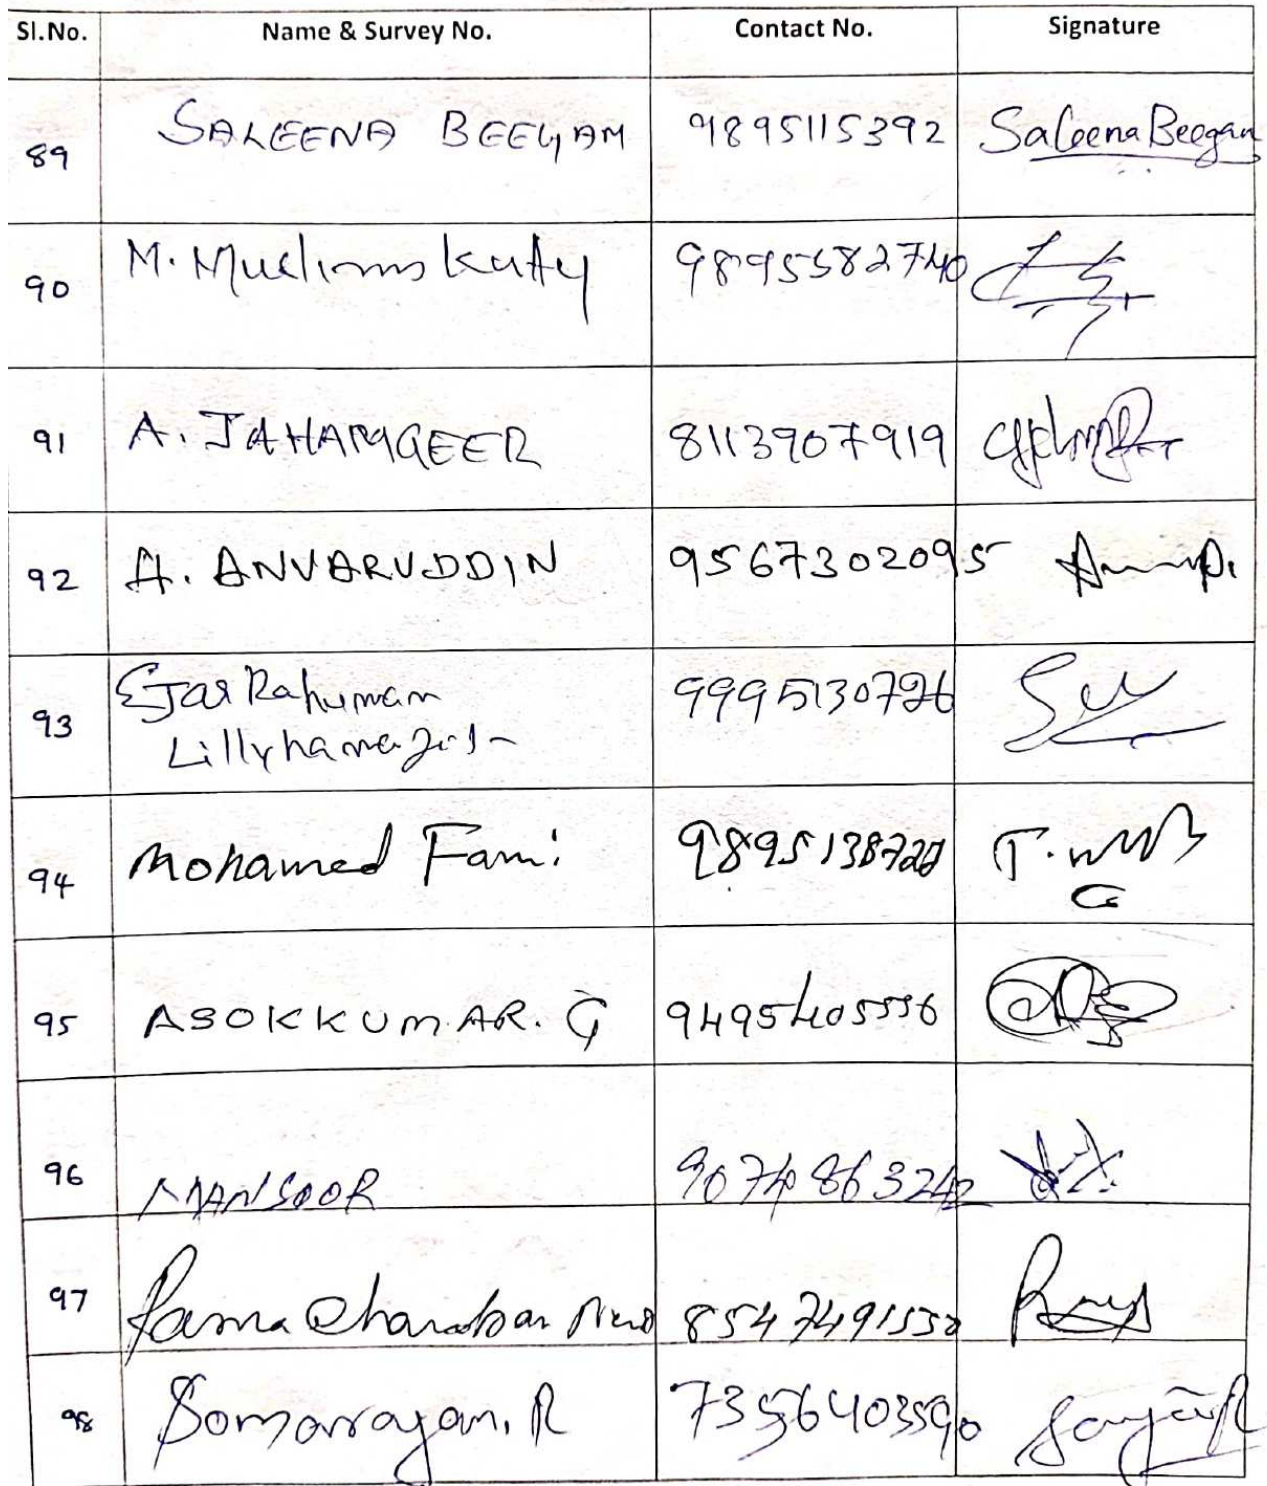 Sl.No. Name & Survey No. Contact No. Signature
89 SALEENA BEEGAM 9895115392 Saleena Beegam
90 M. Muslim Kutty 9895582740
91 A. JAHANGEER 8113907919
92 A. ANVARUDDIN 9567302095
93 Ejas Rahuman 9995130726
94 Mohamed Fami 9895138727
95 ASOKKUMAR. G 9495405536
96 MANSOOR 9074863242
97 Rama Chandran 8547491530
98 Somarajan. R 7356403590